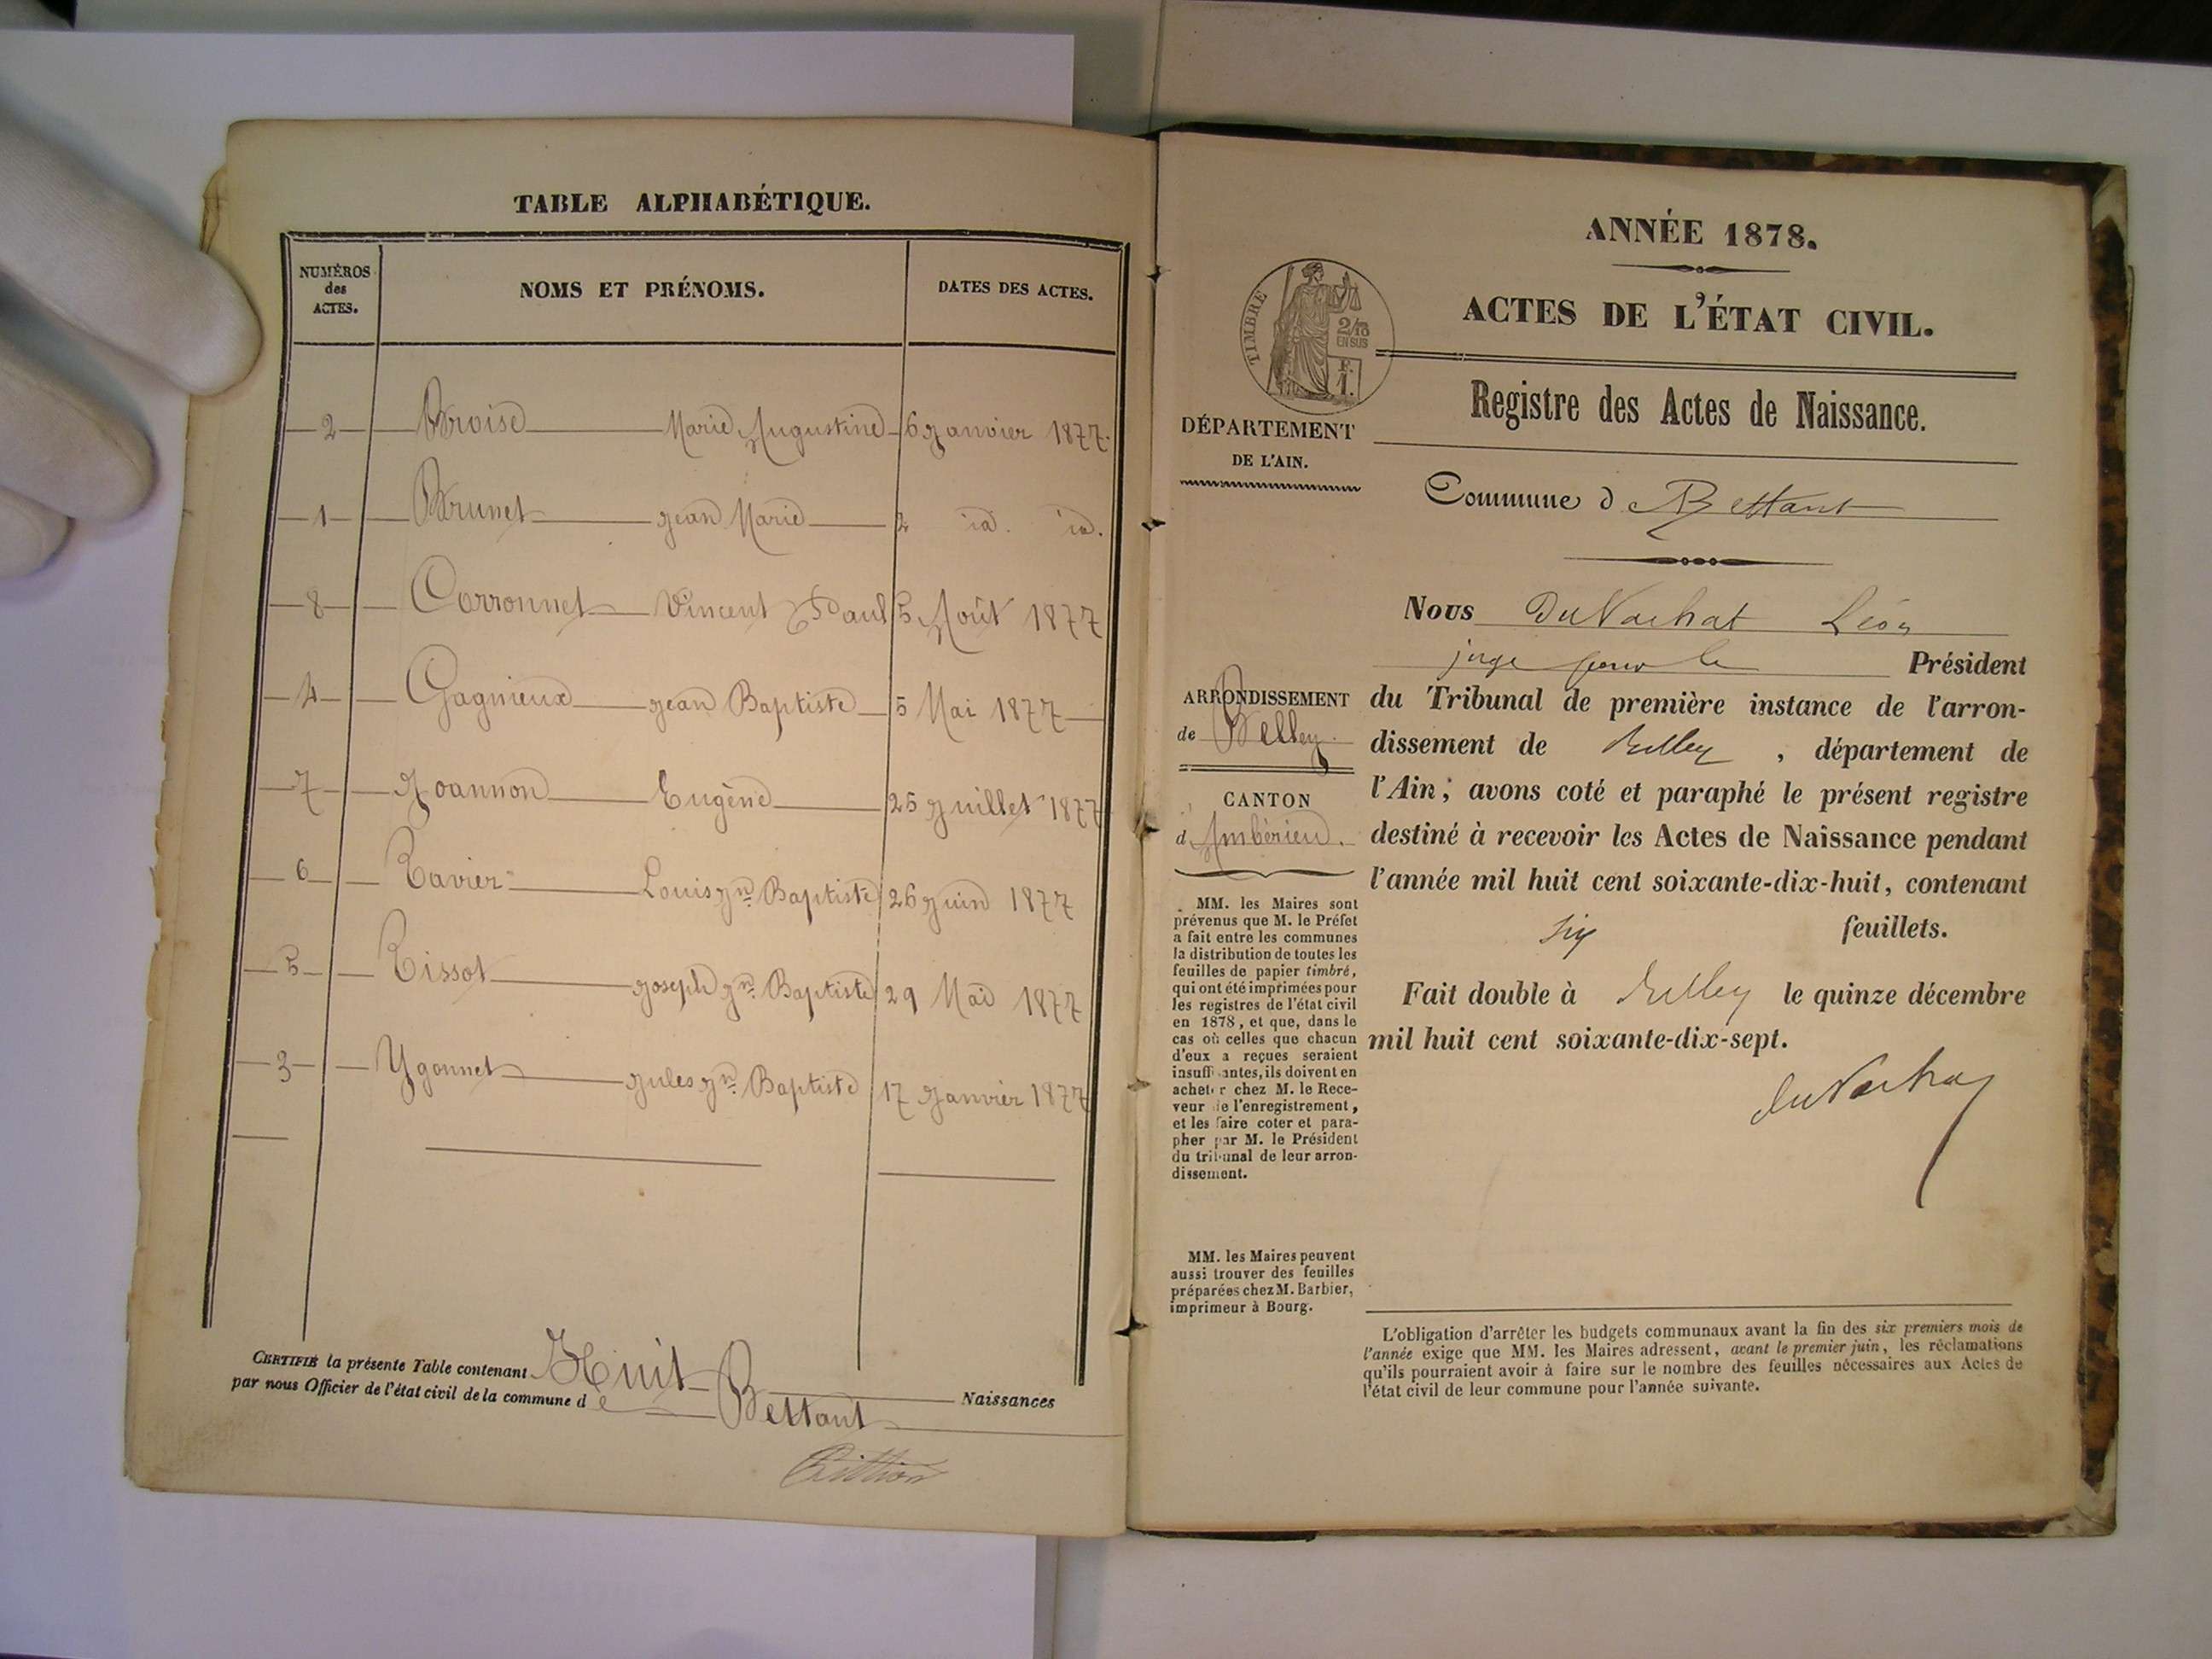 TABLE ALPHABÉTIQUE.
NUMÉROS des ACTES. NOMS ET PRÉNOMS. DATES DES ACTES.
2 Broise Marie Augustine 6 Janvier 1877.
1 Brunet Jean Marie 2 id. id.
8 Carronnet Vincent Paul 5 Août 1877
4 Gagnieux Jean Baptiste 5 Mai 1877
7 Joannon Eugène 25 Juillet 1877
6 Tavier Louis Jn Baptiste 26 Juin 1877
5 Tissot Joseph Jn Baptiste 29 Mai 1877
3 Ygonnet Jules Jn Baptiste 17 Janvier 1877
CERTIFIÉ la présente Table contenant Huit Naissances
par nous Officier de l'état civil de la commune de Bettant
ANNÉE 1878.
ACTES DE L'ÉTAT CIVIL.
TIMBRE
2/10
EN SUS
F.
1.
Registre des Actes de Naissance.
DÉPARTEMENT
DE L'AIN.
Commune d Bettant
ARRONDISSEMENT
de Belley.
CANTON
d'Ambérieu.
MM. les Maires sont
prévenus que M. le Préfet
a fait entre les communes
la distribution de toutes les
feuilles de papier timbré,
qui ont été imprimées pour
les registres de l'état civil
en 1878, et que, dans le
cas où celles que chacun
d'eux a reçues seraient
insuffisantes, ils doivent en
acheter chez M. le Rece-
veur de l'enregistrement,
et les faire coter et para-
pher par M. le Président
du tribunal de leur arron-
dissement.
MM. les Maires peuvent
aussi trouver des feuilles
préparées chez M. Barbier,
imprimeur à Bourg.
Nous Du Vachat Léon
juge pour le Président
du Tribunal de première instance de l'arron-
dissement de Belley, département de
l'Ain; avons coté et paraphé le présent registre
destiné à recevoir les Actes de Naissance pendant
l'année mil huit cent soixante-dix-huit, contenant
six feuillets.
Fait double à Belley le quinze décembre
mil huit cent soixante-dix-sept.
du Vachat
L'obligation d'arrêter les budgets communaux avant la fin des six premiers mois de
l'année exige que MM. les Maires adressent, avant le premier juin, les réclamations
qu'ils pourraient avoir à faire sur le nombre des feuilles nécessaires aux Actes de
l'état civil de leur commune pour l'année suivante.